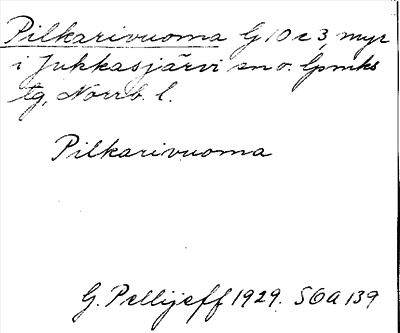 Pilkarivuoma G 10 c 3, myr
i Jukkasjärvi sn o. lpmks
tg, Norrb. l.
Pilkarivuoma
G. Pellijeff 1929. SOA 139